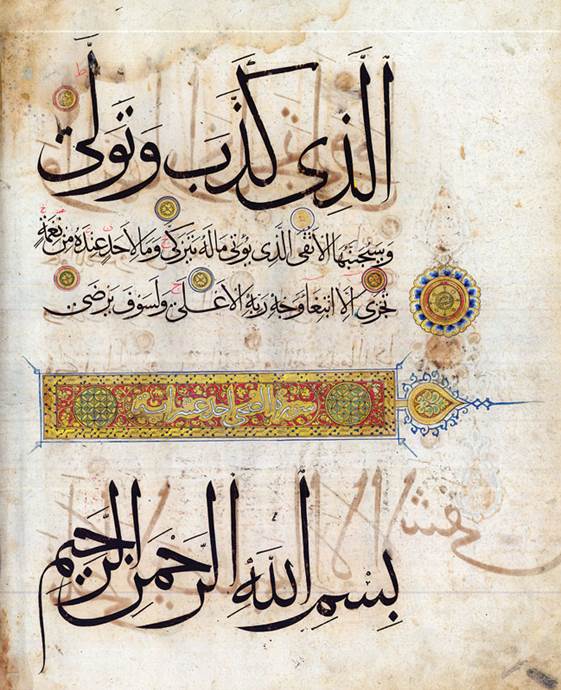 الَّذِى كَذَّبَ وَتَوَلَّى
وَسَيُجَنَّبُهَا الأَتْقَى الَّذِى يُؤْتِى مَالَهُ يَتَزَكَّى وَمَا لِأَحَدٍ عِنْدَهُ مِنْ نِعْمَةٍ
تُجْزَى إِلَّا ابْتِغَاءَ وَجْهِ رَبِّهِ الأَعْلَى وَلَسَوْفَ يَرْضَى
سورة الضحى احد عشر اية
بِسْمِ اللَّهِ الرَّحْمَنِ الرَّحِيمِ